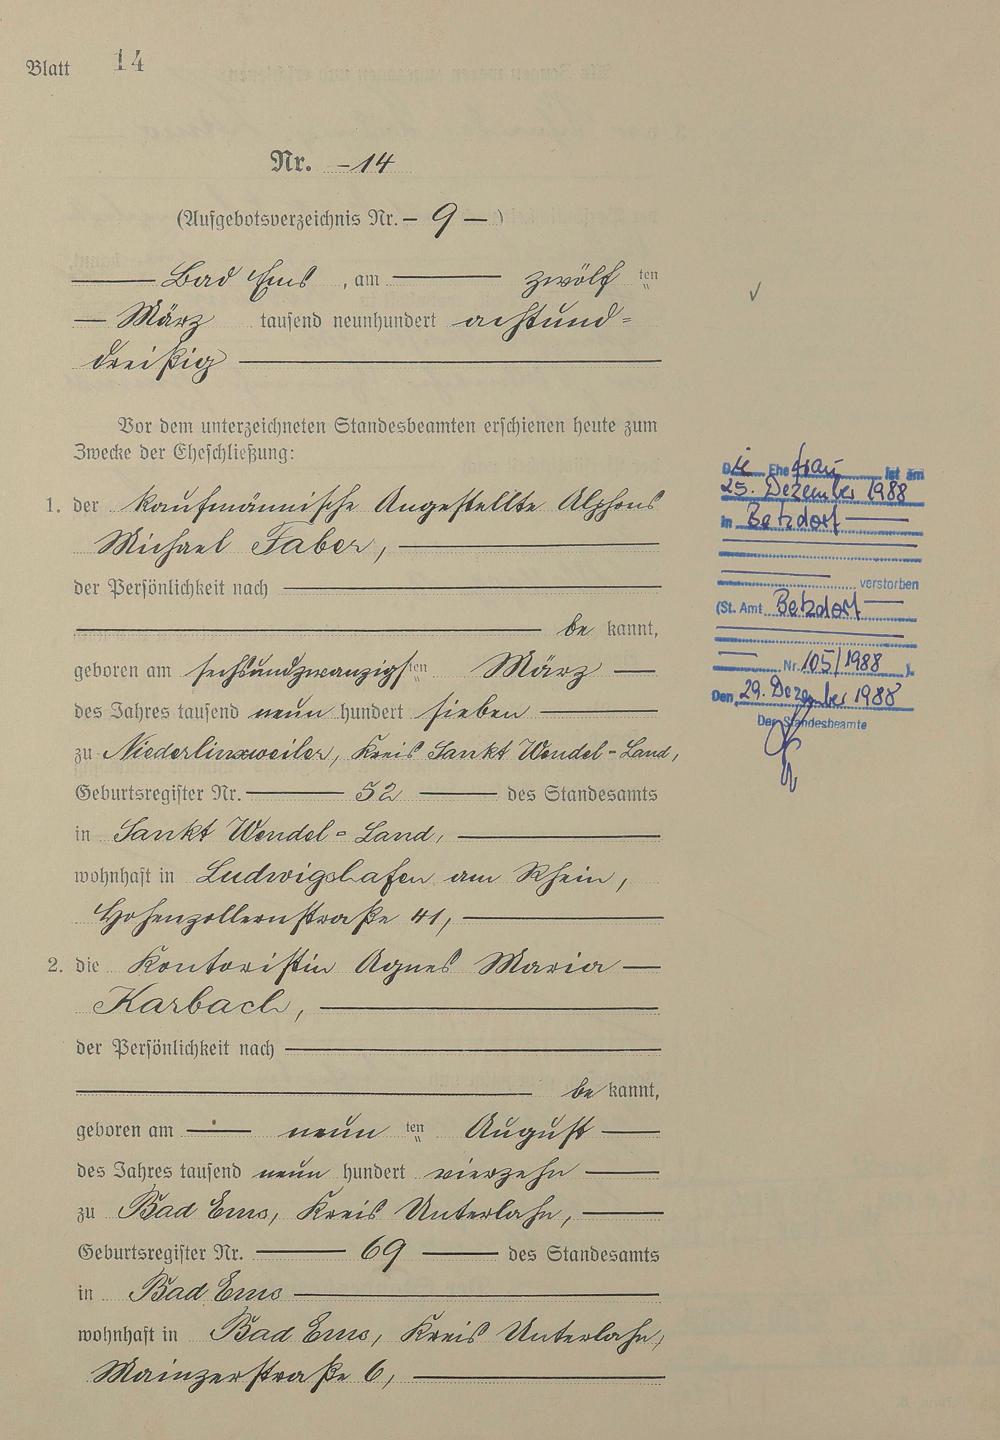 Blatt 14
Nr. -14
(Aufgebotsverzeichnis Nr. - 9 - )
Bad Ems, am zwölf ten
März tausend neunhundert achtund=
dreißig
Vor dem unterzeichneten Standesbeamten erschienen heute zum
Zwecke der Eheschließung:
1. der kaufmännische Angestellte Alphons
Michael Faber,
der Persönlichkeit nach
be kannt,
geboren am sechsundzwanzigs ten März
des Jahres tausend neun hundert sieben
zu Niederlinxweiler, Kreis Sankt Wendel=Land,
Geburtsregister Nr. 52 des Standesamts
in Sankt Wendel=Land,
wohnhaft in Ludwigshafen am Rhein,
Hohenzollernstraße 41,
2. die Kontoristin Agnes Maria
Karbach,
der Persönlichkeit nach
be kannt,
geboren am neun ten August
des Jahres tausend neun hundert vierzehn
zu Bad Ems, Kreis Unterlahn,
Geburtsregister Nr. 69 des Standesamts
in Bad Ems
wohnhaft in Bad Ems, Kreis Unterlahn,
Mainzerstraße 6,
Die Ehefrau ist am
25. Dezember 1988
in Betzdorf
verstorben
(St. Amt Betzdorf
Nr. 105/1988 ).
Den 29. Dezember 1988
Der Standesbeamte